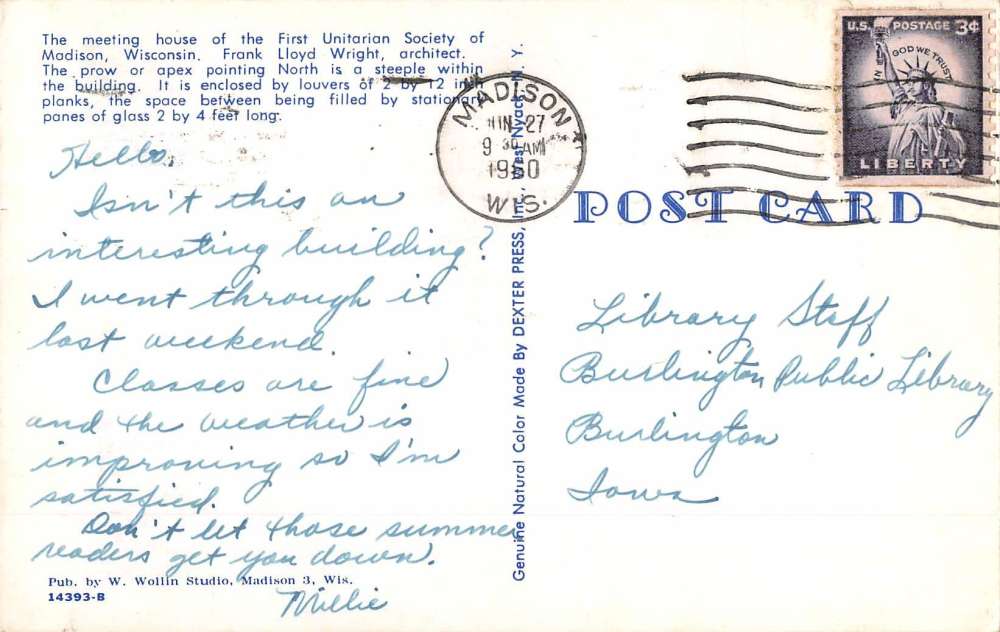 The meeting house of the First Unitarian Society of
Madison, Wisconsin. Frank Lloyd Wright, architect.
The prow or apex pointing North is a steeple within
the building. It is enclosed by louvers of 2 by 12 inch
planks, the space between being filled by stationary
panes of glass 2 by 4 feet long.
Hello,
Isn't this an
interesting building?
I went through it
last weekend.
Classes are fine
and the weather is
improving so I'm
satisfied.
Don't let those summer
readers get you down.
Millie
Pub. by W. Wollin Studio, Madison 3, Wis.
14393-B
Genuine Natural Color Made By DEXTER PRESS, Inc., West Nyack, N. Y.
MADISON
JUN 27
9 30 AM
1960
WIS.
U.S. POSTAGE 3¢
IN GOD WE TRUST
LIBERTY
POST CARD
Library Staff
Burlington Public Library
Burlington
Iowa